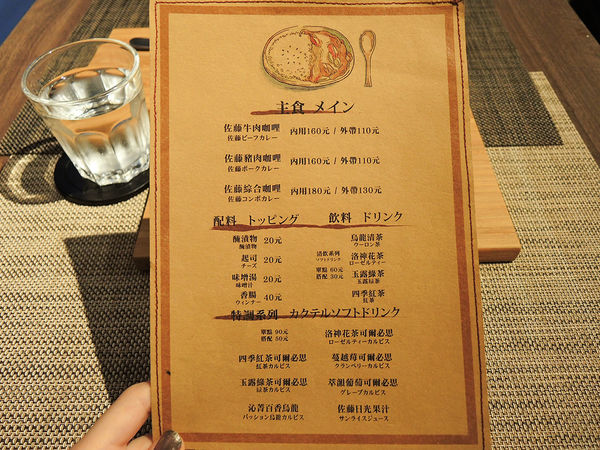 主食 メイン
佐藤牛肉咖哩 內用160元 / 外帶110元
佐藤ビーフカレー
佐藤豬肉咖哩 內用160元 / 外帶110元
佐藤ポークカレー
佐藤綜合咖哩 內用180元 / 外帶130元
佐藤コンボカレー
配料 トッピング
醃漬物 20元
醃漬物
起司 20元
チーズ
味噌湯 20元
味噌汁
香腸 40元
ウィンナー
飲料 ドリンク
清飲系列
ソフトドリンク
單點 60元
搭配 30元
烏龍清茶
ウーロン茶
洛神花茶
ローゼルティー
玉露綠茶
玉露緑茶
四季紅茶
紅茶
特調系列 カクテルソフトドリンク
單點 90元
搭配 50元
洛神花茶可爾必思
ローゼルティーカルピス
四季紅茶可爾必思
紅茶カルピス
蔓越莓可爾必思
クランベリーカルピス
玉露綠茶可爾必思
緑茶カルピス
萃韻葡萄可爾必思
グレープカルピス
沁菁百香烏龍
パッション烏龍カルピス
佐藤日光果汁
サンライズジュース